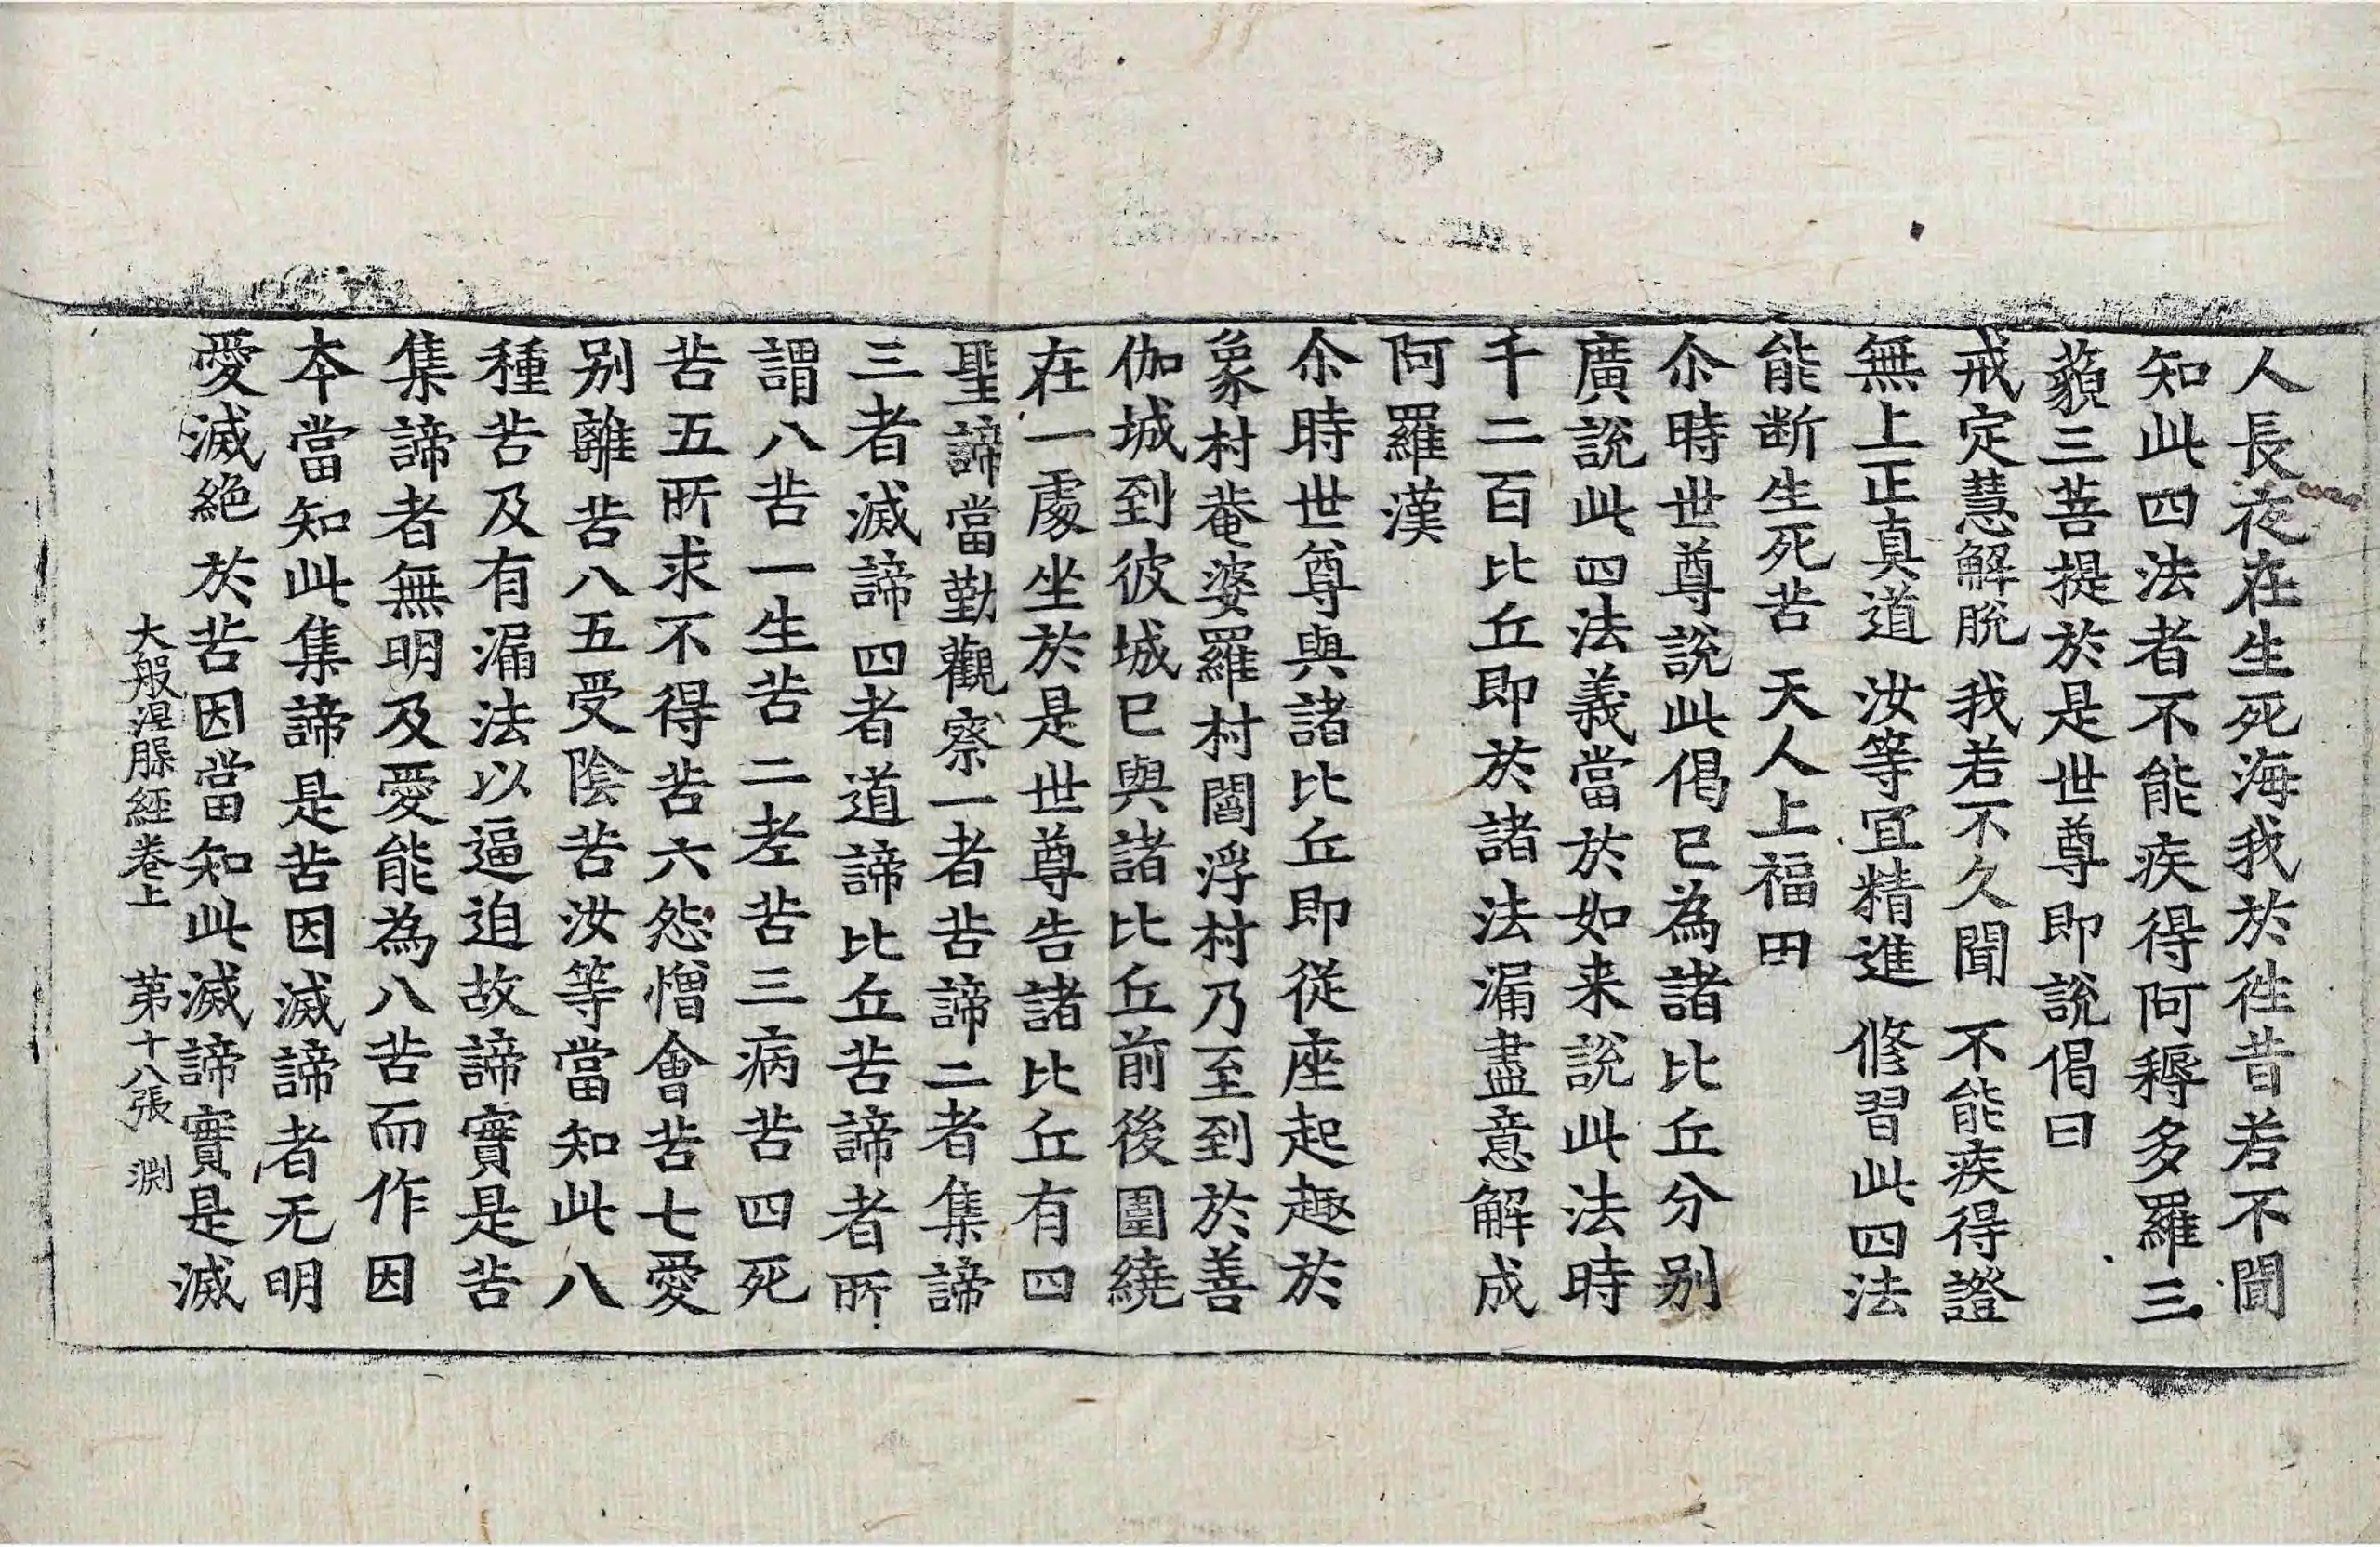 人長夜在生死海我於徃昔若不聞
知此四法者不能疾得阿耨多羅三
藐三菩提於是世尊即說偈曰
戒定慧解脫 我若不久聞 不能疾得證
無上正真道 汝等宜精進 修習此四法
能断生死苦 天人上福田
尒時世尊說此偈已為諸比丘分別
廣說此四法義當於如来說此法時
千二百比丘即於諸法漏盡意解成
阿羅漢
尒時世尊與諸比丘即從座起趣於
象村菴婆羅村閻浮村乃至到於善
伽城到彼城已與諸比丘前後圍繞
在一處坐於是世尊告諸比丘有四
聖諦當勤觀察一者苦諦二者集諦
三者滅諦四者道諦比丘苦諦者所
謂八苦一生苦二老苦三病苦四死
苦五所求不得苦六怨憎會苦七愛
別離苦八五受陰苦汝等當知此八
種苦及有漏法以逼迫故諦實是苦
集諦者無明及愛能為八苦而作因
本當知此集諦是苦因滅諦者无明
愛滅絶於苦因當知此滅諦實是滅
大般涅槃經卷上 第十八張 渊